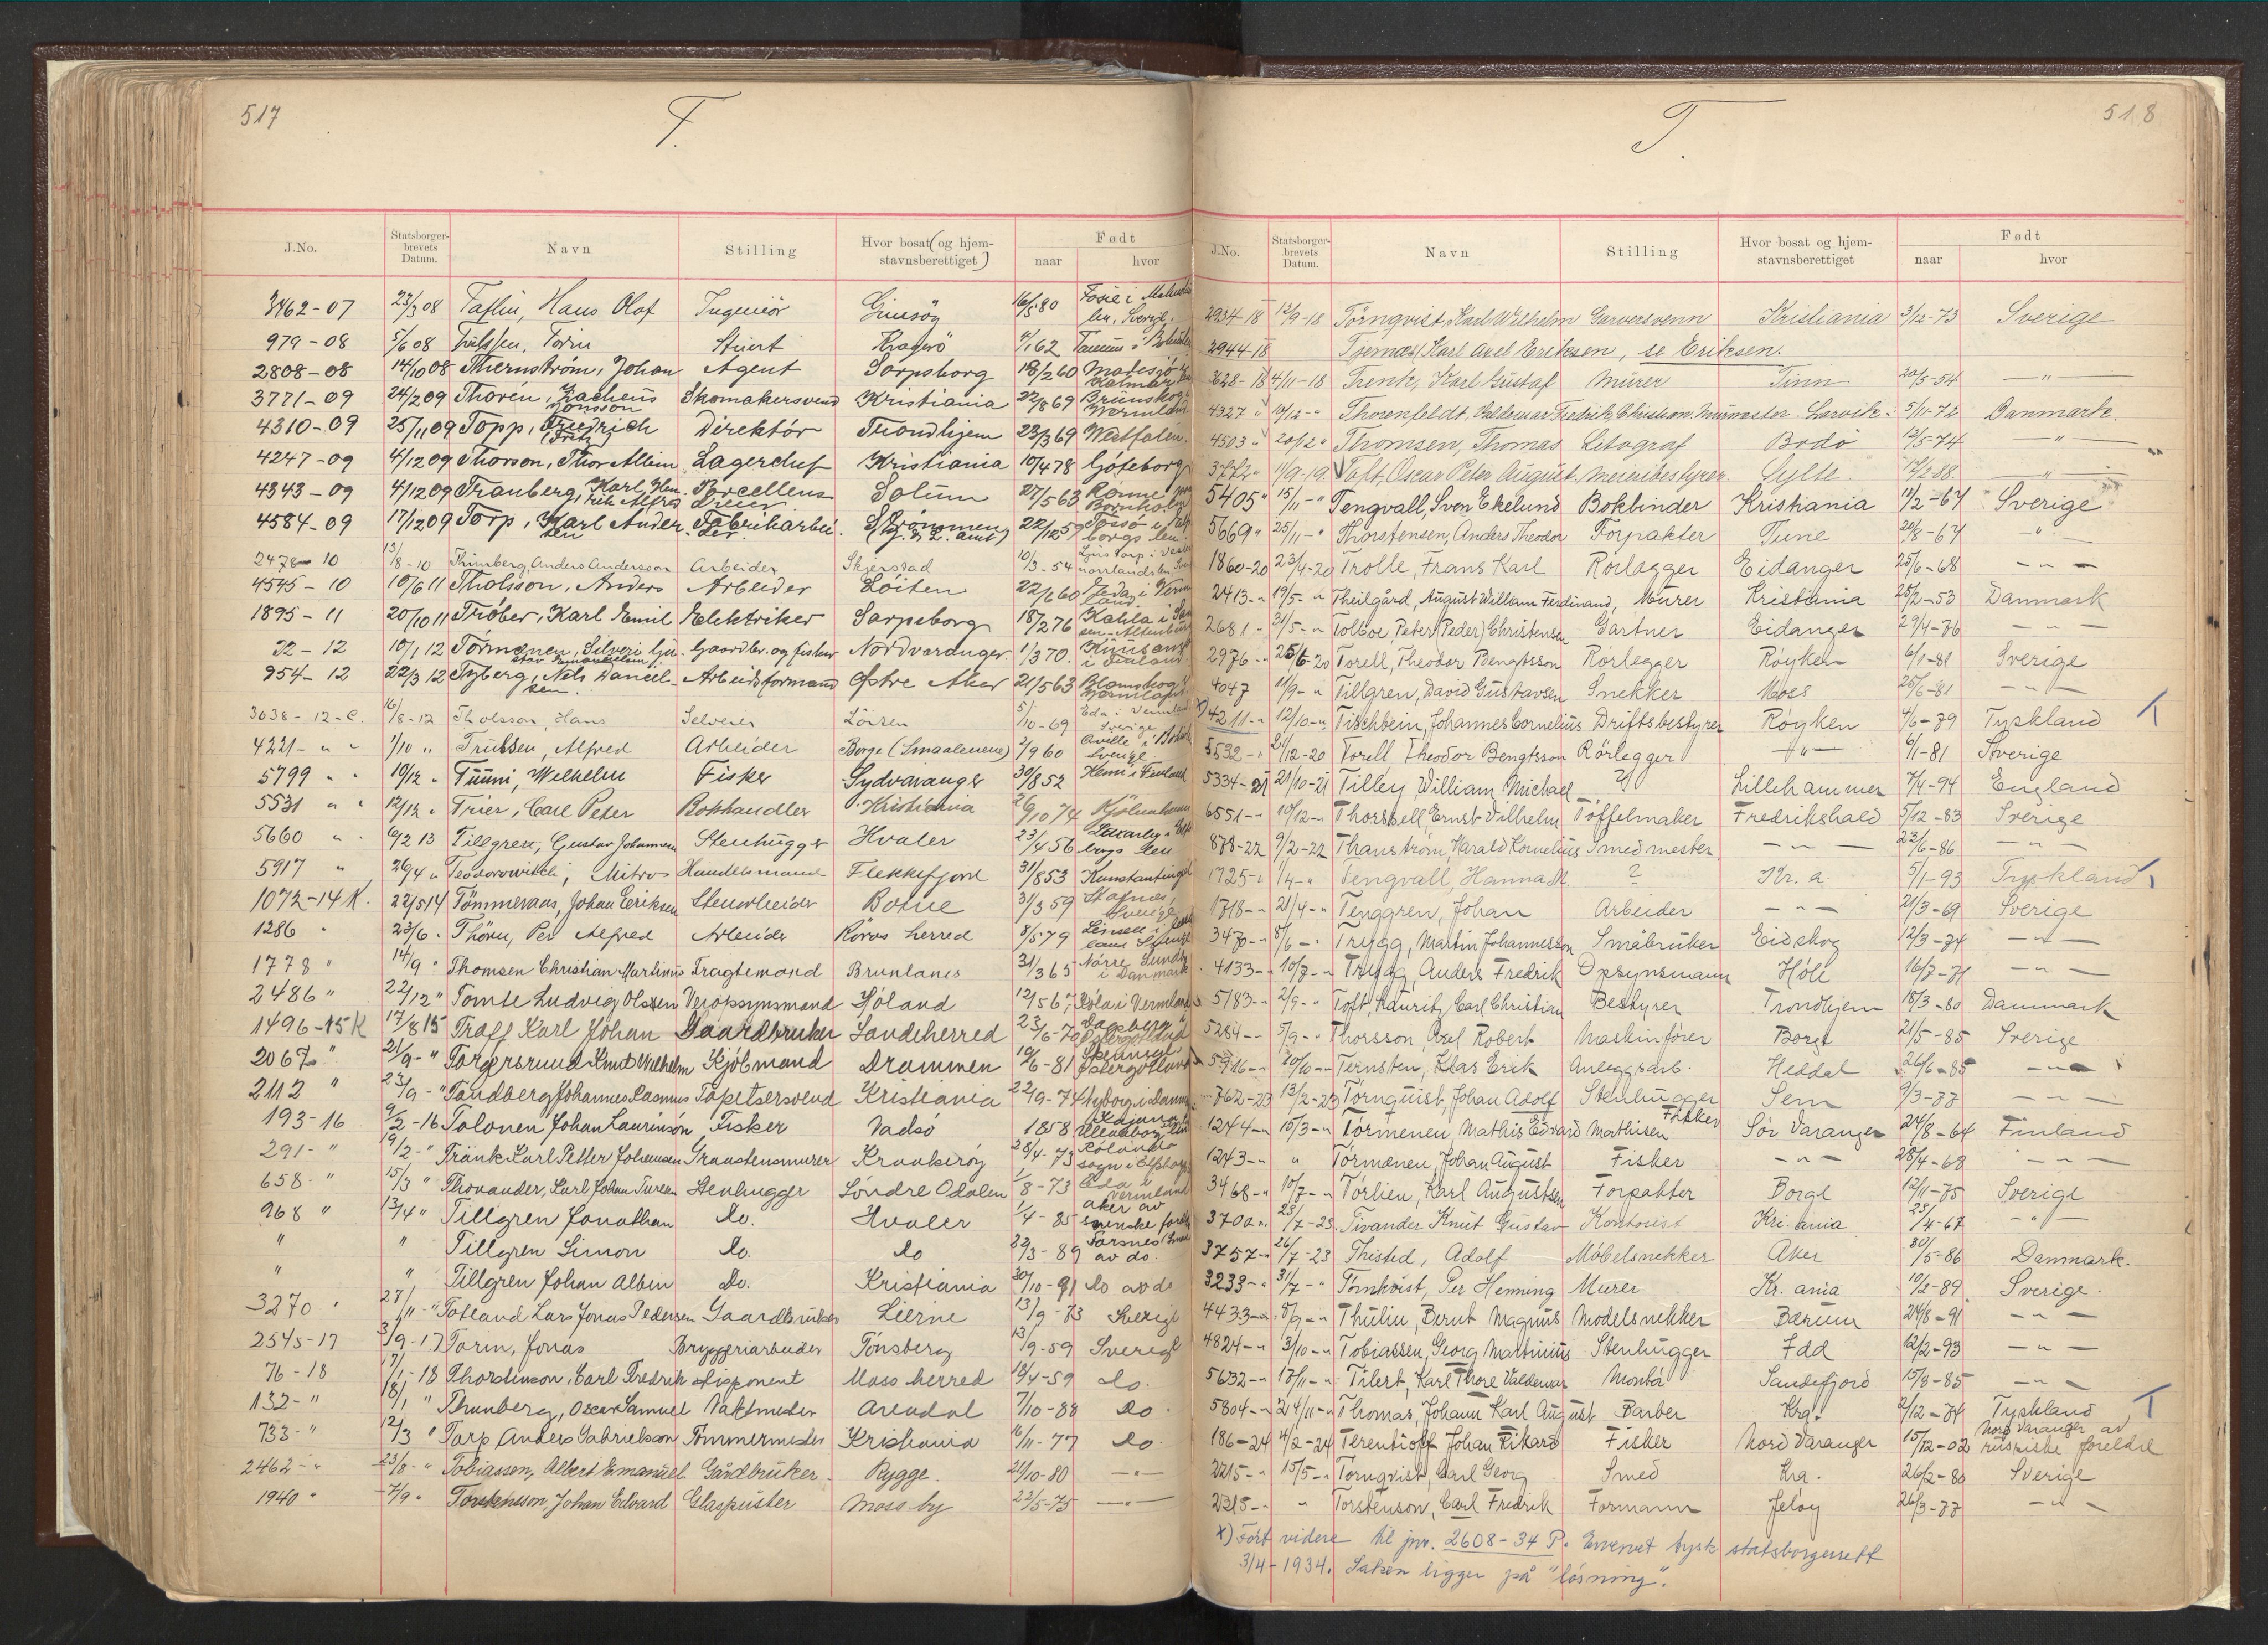 517
T.
J.No. Statsborger-brevets Datum. Navn Stilling Hvor bosat (og hjem-stavnsberettiget) Født naar hvor
3462-07 23/3 08 Taflin, Hans Olof Ingeniör Gimsöy 16/5 80 Fosie i len, Sverige.
979-08 5/6 08 Stuert Kragerö 62 Tanum i
2808-08 14/10 08 Thernström, Johan Agent Sarpsborg 18/2 60
3771-09 24/2 09 Thorén, Zacheus Jonsson Skomakersvend Kristiania 22/8 69
4310-09 25/11 09 Topp, Friedrich (Fritz) Direktör Trondhjem 23/3 69 Westfalen.
4247-09 4/12 09 Thorson, Thor Allein Lagerchef Kristiania 10/4 78 Göteborg
4343-09 4/12 09 Tranberg, Karl Hen-rik Alfred Porcellens Solum 27/5 63 Rönne Bornholm
4584-09 17/12 09 Torp, Karl Ander-sen Fabrikarbei-der Strömmen 22/12 57 borgs len
2478-10 13/8-10 Trimberg, Anders Andersson Arbeider Skjerstad 10/3-54
4545-10 10/6 11 Tholsson, Anders Arbeider Löiten 22/6 60 Eda i Verm land
1895-11 20/10 11 Tröber, Karl Emil Elektriker Sarpsborg 18/2 76 Kahla i Sach sen-Altenburg
32-12 10/1 12 Törmänen, Silveri Gaardbr. og fisker Nordvaranger 1/3 70. i Finland
954-12 22/3 12 Tyberg, Nels Daniel-sen. Arbeidsformand Östre Aker 21/5 63 Vermland
3038-12-C. 16/8-12 Tholsson, Hans Selveier Löiten 5/10-69 Eda i Vermland Sverige
4221- " " 1/10 " Trulssen, Alfred Arbeider Borge (Smaalenene) 2/9 60 Qville i Sverige
5799 " " 10/12 " Tuuni, Wilhelm Fisker Sydvaranger 30/8 52 Kemi i Finland
5531 " " 12/12 " Trier, Carl Peter Bokhandler Kristiania 26/10 74 Kjöbenhavn
5660 " " 6/2 13 Tillgren, Gustav Johannesen Stenhugger Hvaler 23/4 56 borgs len
5917 " 26/4 " Teodorowitsch, Mitros Handelsmand Flekkefjord 31/8 53 Konstantinopel
1072-14 K. 22/5 14 Tömmeraas, Johan Eriksen Stenarbeider Botne 31/3 59 Stafnes, Sverige
1286 " 23/6 " Thörn, Per Alfred Arbeider Röros herred 8/5 79
1778 " 14/9 " Thomsen Christian Martinus Fragtemand Brunlanes 31/3 65 Nörre Sundby i Danmark
2486 " 22/12 " Tomte Ludvig Olssen Veiopsynsmand Höland 12/1 56 Vermland
1496-15K 17/8 15 Traff Karl Johan Gaardbruker Sandeherred 23/6-70 Östergötland
2067 " 21/9-" Torgersruud Knut Wilhelm Kjöbmand Drammen 19/6-81 Östergötland
2112 " 23/9-" Tandberg Johannes Rasmus Tapetsersvend Kristiania 22/9-74 Nyborg i Danm.
193-16 9/2-16 Tolonen Johan Laurinson Fisker Vadsö 1858 Uleaaborg len
291-" 19/2-" Tränk Karl Petter Johansen Graastensmurer Kraakeröy 28/4-73 sogn i Elfsborg
658-" 15/3 " Thorander, Carl Johan Stenhugger Söndre Odalen 1/8-73 Eda i Vermland
968 " 13/4 " Tillgren Jonathan do. Hvaler 1/4-85 aker av svenske foreld
" " Tillgren Simon do. do 23/3-89 av do.
" " Tillgren Johan Albin do. Kristiania 30/10-91 do av do
3270 " 27/11-" Totland Lars Jonas Pedersen Gaardbruker Lierne 13/9-73 Sverige
2545-17 3/9-17 Torin, Jonas Bryggeriarbeider Tönsberg 13/9-59 Sverige
76-18 17/1-18 Thorstinson, Carl Fredrik disponent Moss herred 18/4-59 do.
132-" 18/1 " Thunberg, Oscar Samuel Vaktmester Arendal 7/10-88 do.
733-" 12/3 " Torp Anders Gabrielsson Tömmermester Kristiania 16/11-77 do.
2462-" 23/8-" Tobiassen, Albert Emanuel Gårdbruker Rygge. 21/10-80 —"—
1940 " 7/9 " Torstensson, Johan Edvard Glaspuster Moss by 22/5-75 —"—
518
T.
J.No. Statsborger-brevets Datum. Navn Stilling Hvor bosat og hjem-stavnsberettiget Født naar hvor
2934-18 12/9-18 Törnqvist, Karl Wilhelm Garversvenn Kristiania 3/12-73 Sverige
2944-18 Tjernæs, Karl Axel Eriksen, se Eriksen.
3628-18 4/11-18 Trenk, Karl Gustaf Murer Tinn 20/5-54 —"—
4327 " 10/12-" Thorenfeldt, Valdemar Fredrik Christian Murmester. Larvik. 5/11-72 Danmark.
4503 " 20/12 " Thomsen, Thomas Litograf Bodö 12/5-74 —"—
3772 " 11/9-19. Toft, Oscar Peter August. Meieribestyrer. Sylte. 12/2-88. —"—
5405 " 15/11-" Tengvall, Sven Ekelund Bokbinder Kristiania 11/2-67 Sverige
5669 " 25/11-" Thorstensen, Anders Theodor Forpakter Tune 20/8-67 —"—
1860-20 23/4-20 Trolle, Frans Karl Rörlægger Eidanger 25/6-68 —"—
2413-" 19/5-" Theilgård, August William Ferdinand, Murer Kristiania 25/2-53 Danmark
2681-" 31/5-" Tolboe, Peter (Peder) Christensen Gartner Eidanger 29/4-76 —"—
2976-" 25/6-20 Torell, Theodor Bengtsson Rörlegger Röyken 6/1-81 Sverige
4047 11/9-" Tillgren, David Gustavsen Snekker Moss 25/6-81 —"—
x) 4211-" 12/10-" Tischbein, Johannes Cornelius Driftsbestyrer Röyken 4/6-79 Tyskland T
5532-" 21/12-20 Torell Theodor Bengtsson Rörlegger —"— 6/1-81 Sverige
5334-21 21/10-21 Tilley, William Michael ? Lillehammer 7/4-94 England
6551-" 10/12-" Thorssell, Ernst Vilhelm Töffelmaker Fredrikshald 5/12-83 Sverige
878-22 9/2-22 Thanström, Harald Kornelius Smedmester —"— 22/6-86 —"—
1725-" 1/4-" Tengvall, Hanna M. ? Kr.a. 5/1-93 Tyskland
1718-" 21/4-" Tenggren, Johan Arbeider —"— 21/3-69 Sverige
3470-" 8/6-" Trygg, Martin Johannesson Småbruker Eidskog 12/3-74 —"—
4133-" 10/7-" Trygg, Anders Fredrik Opsynsmann Höle 16/7-71 —"—
5183-" 2/9-" Toft, Lauritz Carl Christian Bestyrer Trondhjem 18/3-80 Danmark
5284-" 5/9-" Thorsson, Axel Robert Maskinförer Borge 21/5-85 Sverige
5716-" 20/10-" Ternsten, Klas Erik Anleggsarb. Heddal 26/6-85 —"—
762-23 13/2-23 Törnquist, Johan Adolf Stenhugger Sem 9/3-77 —"—
1244-" 15/3-" Törmenen, Mathis Edvard Mathisen Fisker Sör Varanger 24/8-64 Finland
1243-" " Törmænen, Johan August Fisker —"— 28/4-68 —"—
3468-" 10/7-" Törlien, Karl Augustsen Forpakter Borge 12/11-75 Sverige
3700-" 23/7-23. Tivander Knut Gustav Kontorist Kri.ania 23/4-67 —"—
3757-" 26/7-23 Thisted, Adolf Möbelsnekker Aker 30/5-86 Danmark.
3233-" 31/7-" Törnkvist, Per Henning Murer Kr.ania 10/2-89 Sverige.
4433-" 8/9-" Thulin, Bernt Magnus Modelsnekker Bærum 24/8-91 —"—
4824-" 3/10-" Tobiassen, Georg Martinius Stenhugger Idd 12/2-93 —"—
5632-" 17/11-" Tilert, Karl Thore Valdemar Montör Sandefjord 15/8-85 —"—
5804-" 24/11-" Thomas, Johann Karl August Barber Kra. 2/12-74 Tyskland T
186-24 4/2-24 Terentioff Johan Rikard Fisker Nord Varanger 15/12-02 Nord Varanger av russiske foreldre
2215-" 15/5-" Törnqvist, Carl Georg Smed Kra. 26/2-80 Sverige
2315-" " Torstenson, Carl Fredrik Formann Jelöy 26/3-77 —"—
x) Fört videre til jnr. 2608-34 P. Ervervet tysk statsborgerrett
3/4-1934. Saken ligger på "lösning".